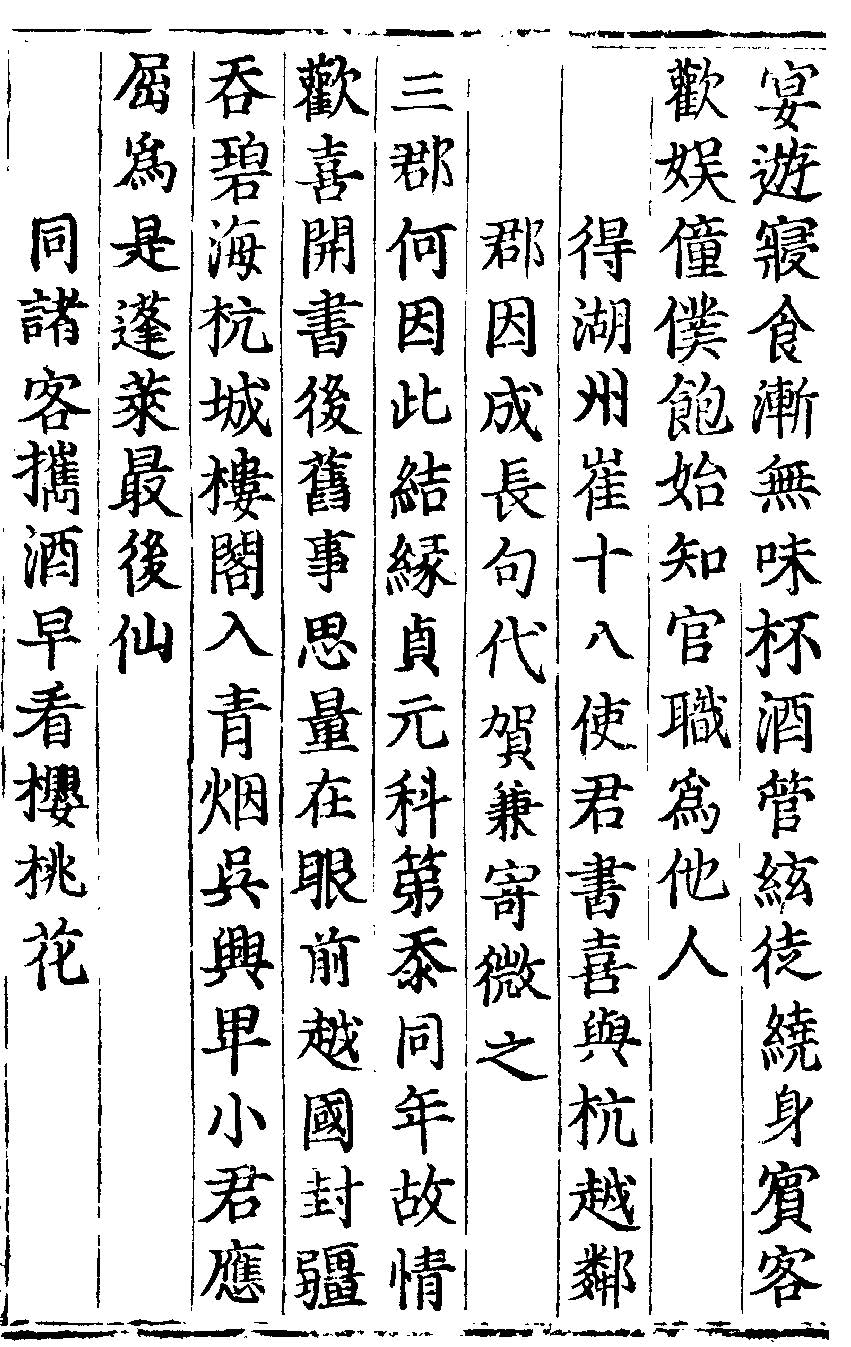 宴遊寢食漸無味杯酒管絃徒繞身賓客
歡娱僮僕飽始知官職為他人
得湖州崔十八使君書喜與杭越鄰
郡因成長句代賀兼寄微之
三郡何因此結緣貞元科第忝同年故情
歡喜開書後舊事思量在眼前越國封疆
吞碧海杭城樓閣入青烟吳興卑小君應
屈為是蓬萊最後仙
同諸客攜酒早看櫻桃花